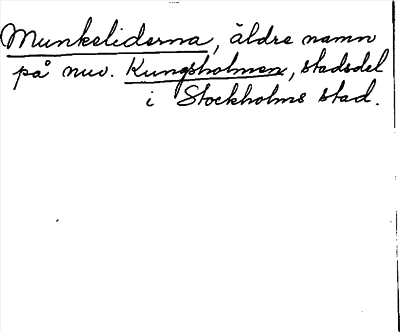 Munkeliderna, äldre namn
på nuv. Kungsholmen, stadsdel
i Stockholms stad.